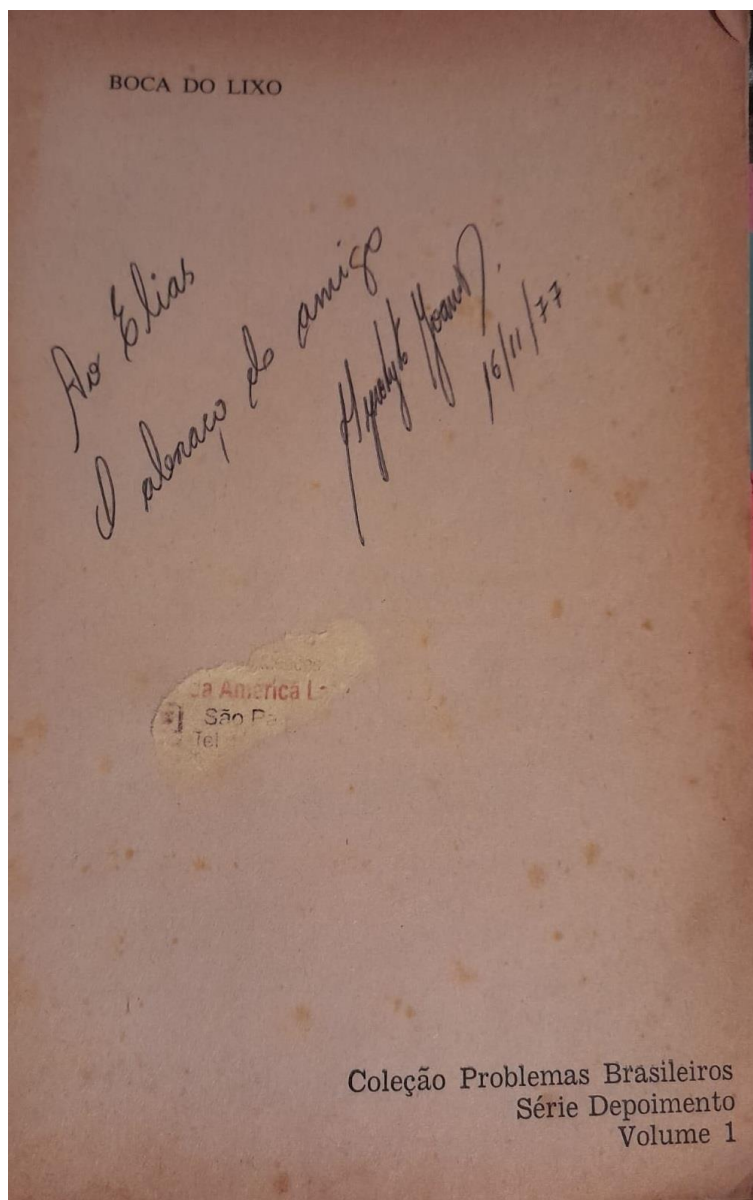 BOCA DO LIXO
Ao Elias
O abraço do amigo
Hyroldyto Joanid
16/11/77
da America L
São Pa
Tel
Coleção Problemas Brasileiros
Série Depoimento
Volume 1